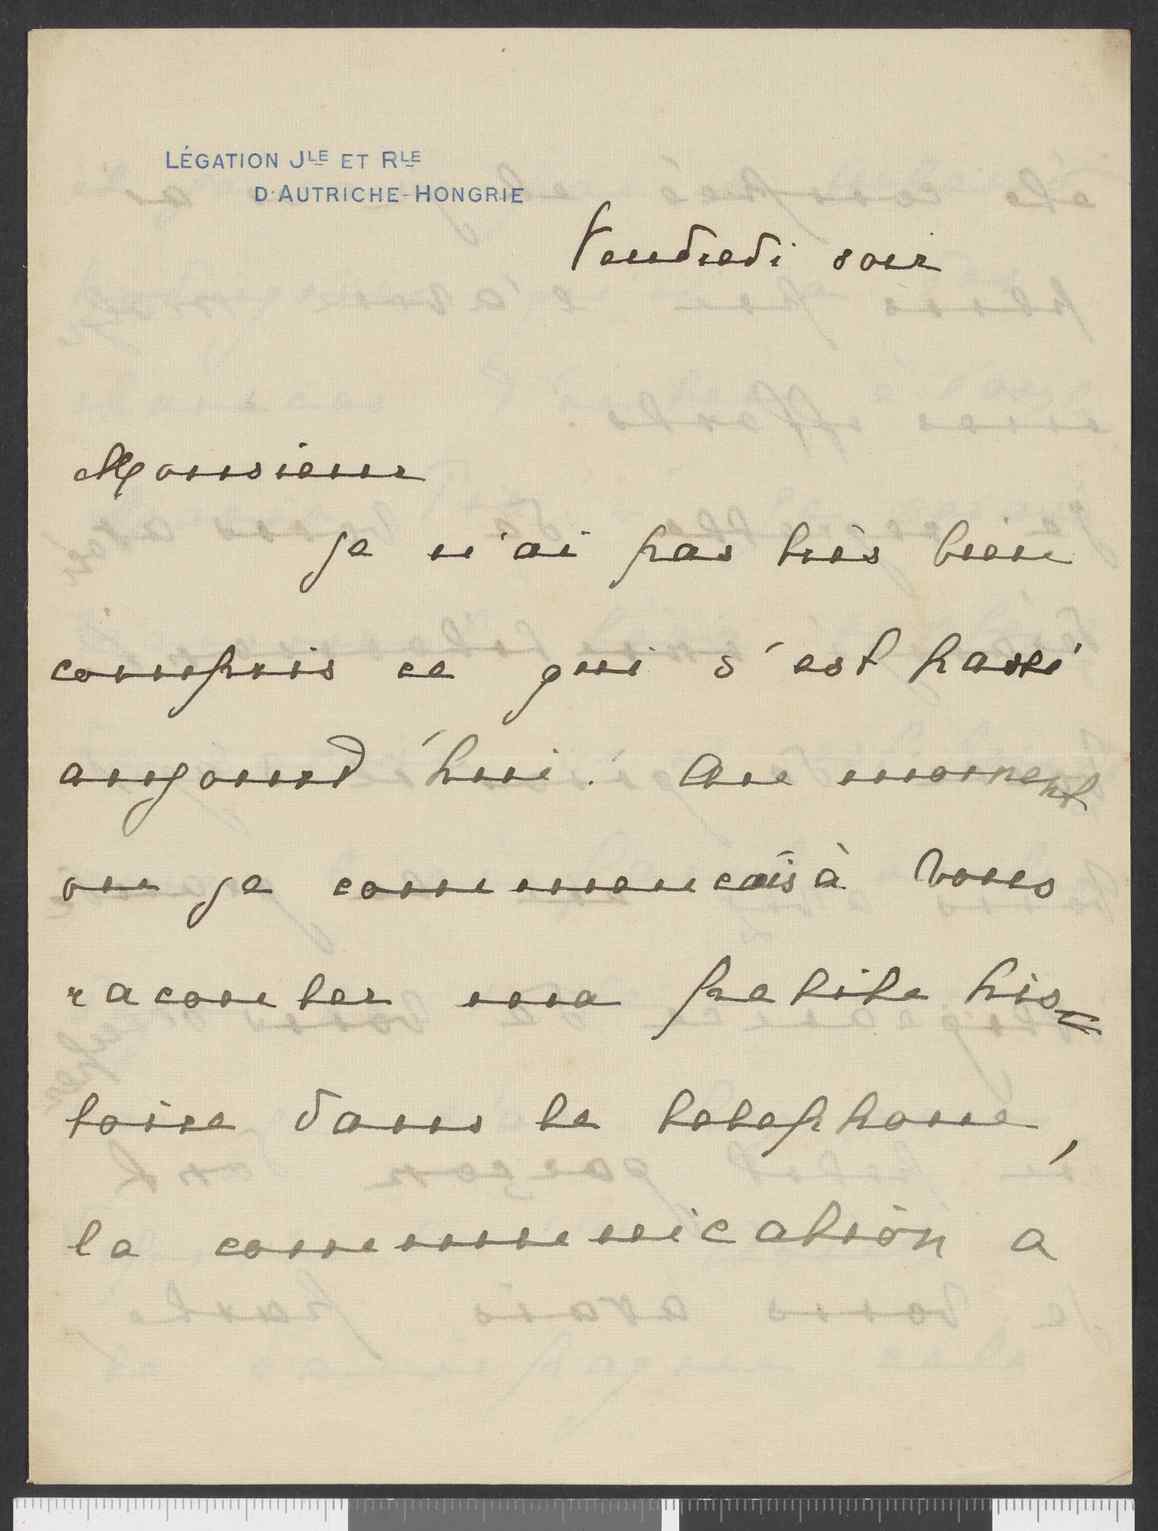 LÉGATION JLE ET RLE
D'AUTRICHE-HONGRIE
Vendredi soir
Monsieur
je n'ai pas très bien
compris ce qui s'est passé
aujourd'hui. Au moment
ou je commencais à vous
raconter ma petite his=
toire dans le telephone,
la communication a